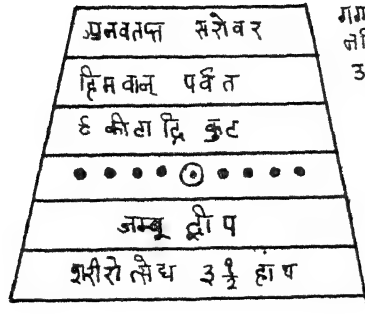 अनवतप्त सरोवर
हिमवान् पर्वत
ह कीटाद्रि कुट
जम्बू द्वीप
शरीरोत्सेध ३ १/२ हाथ
गग
ज
३